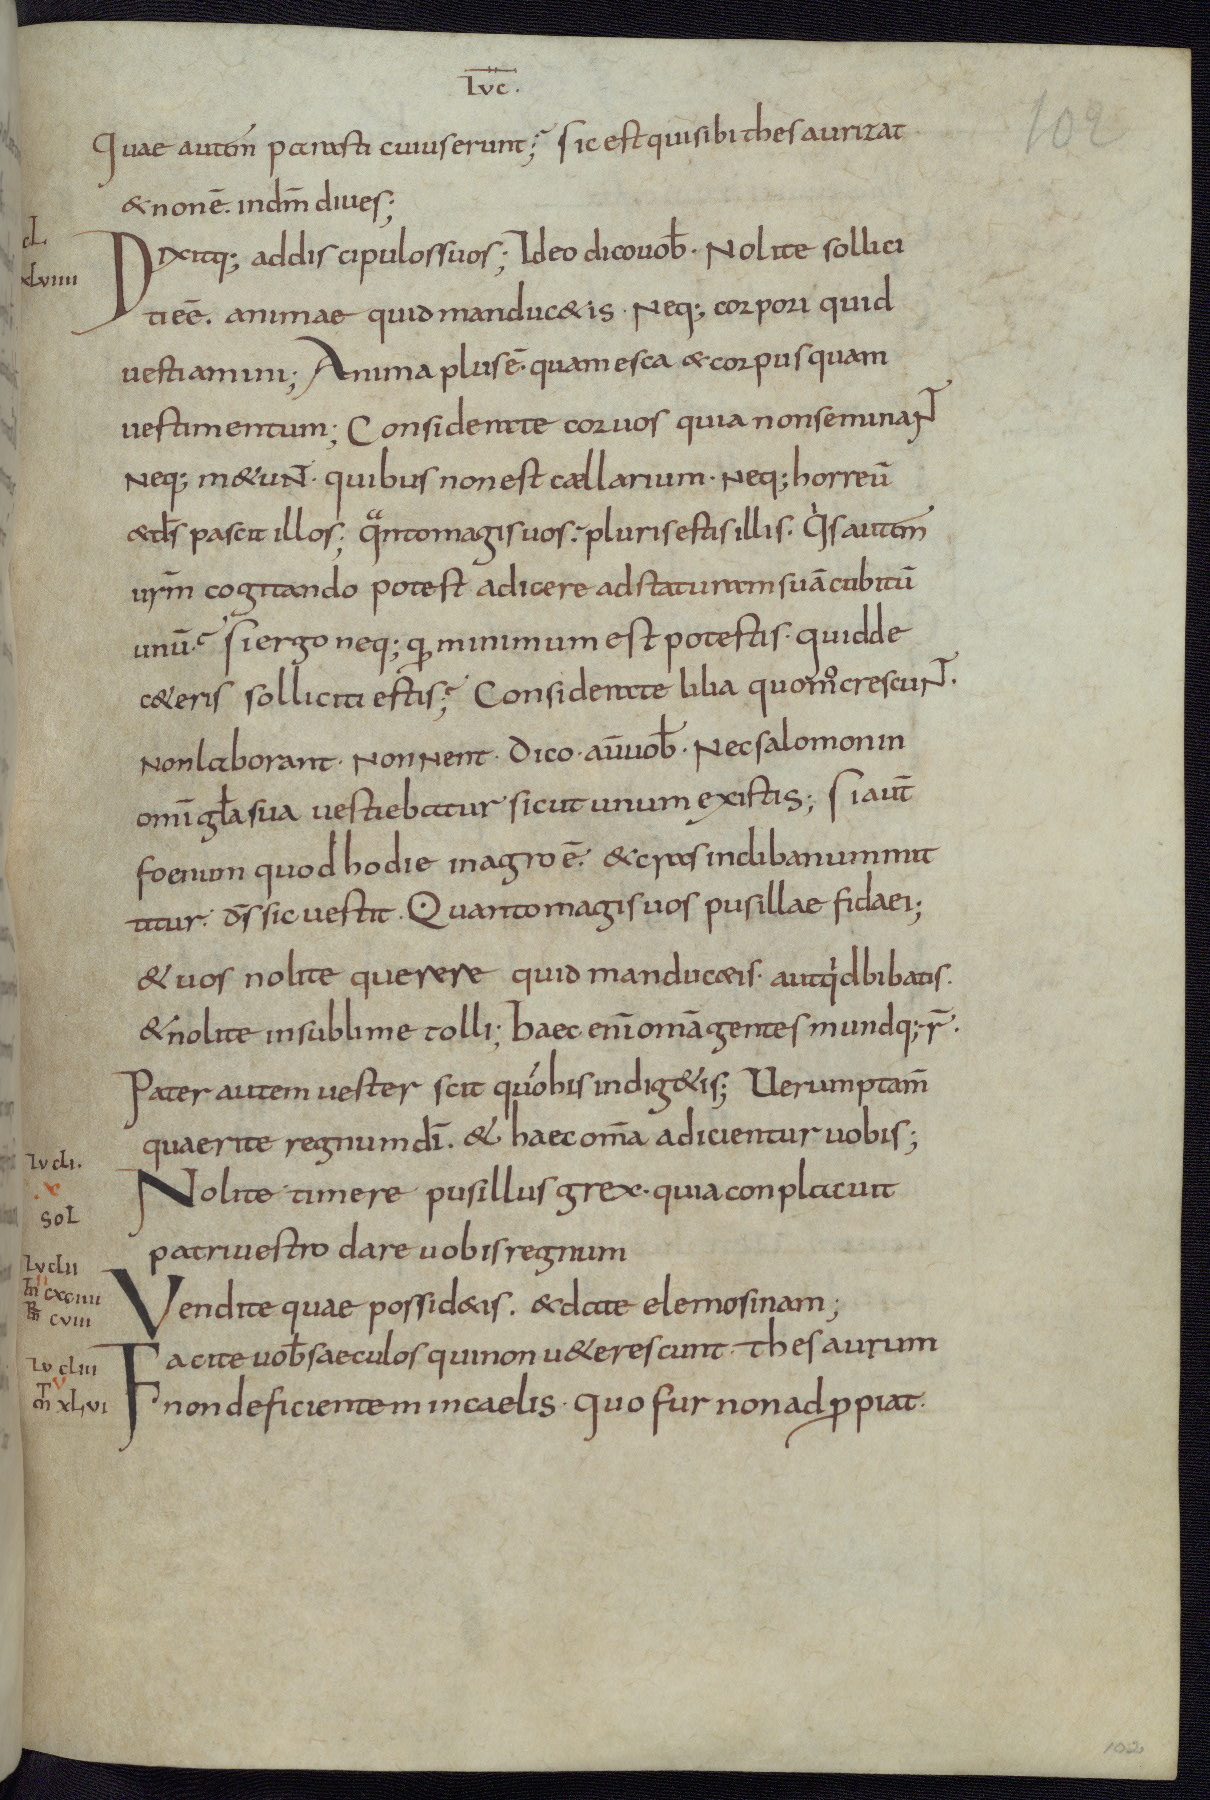 lvc.
102
Quae autem̄ parasti cuius erunt; Sic est qui sibi thesaurizat
& non ē. in dm̄ diues;
cL
xLviiii
Dixitq; ad discipulos suos; Ideo dico uob̄. Nolite sollici
ti eē. animae quid manduc&is. Neq; corpori quid
uestiamini; Anima plus ē. quam esca & corpus quam
uestimentum; Considerate coruos quia non seminaNT̄
Neq; m&uNT̄. quibus non est caellarium. Neq; horreū
& d̄s pascit illos; qantomagis uos. pluris estis illis. Qis autem
urm̄ cogitando potest adicere ad staturam suā cubitū
unū. Si ergo neq; qđ minimum est potestis. quid de
c&eris solliciti estis; Considerate lilia quom̊ crescuNT̄.
Non laborant. Non Nent. Dico. aūuob̄. Nec salomon in
omī gl̄a sua uestiebatur sicut unum ex istis; Si aut̄
foenum quod hodie in agro ē. & cras in clibanum mit
titur. d̄s sic uestit. Quanto magis uos pusillae fidaei;
& uos nolite querere quid manducaeis. aut qid bibatis.
& nolite in sublime tolli; haec enī omā gentes mundq; r̄.
Pater autem uester scit quobis indig&is; Uerumptam̄
quaerite regnum dī. & haec om̄a adicientur uobis;
lv cli.
x
soL
Nolite timere pusillus grex. quia conplacuit
patri uestro dare uobis regnum
lv clii
ii
m̄ cxciiii
m̄r cviii
Vendite quae possid&is. & date elemosinam;
lv cliii
v
m̄ xLvi
Facite uob̄ saeculos qui non u&erescunt. thesaurum
non deficientem in caelis. Quo fur non adpropiat.
102